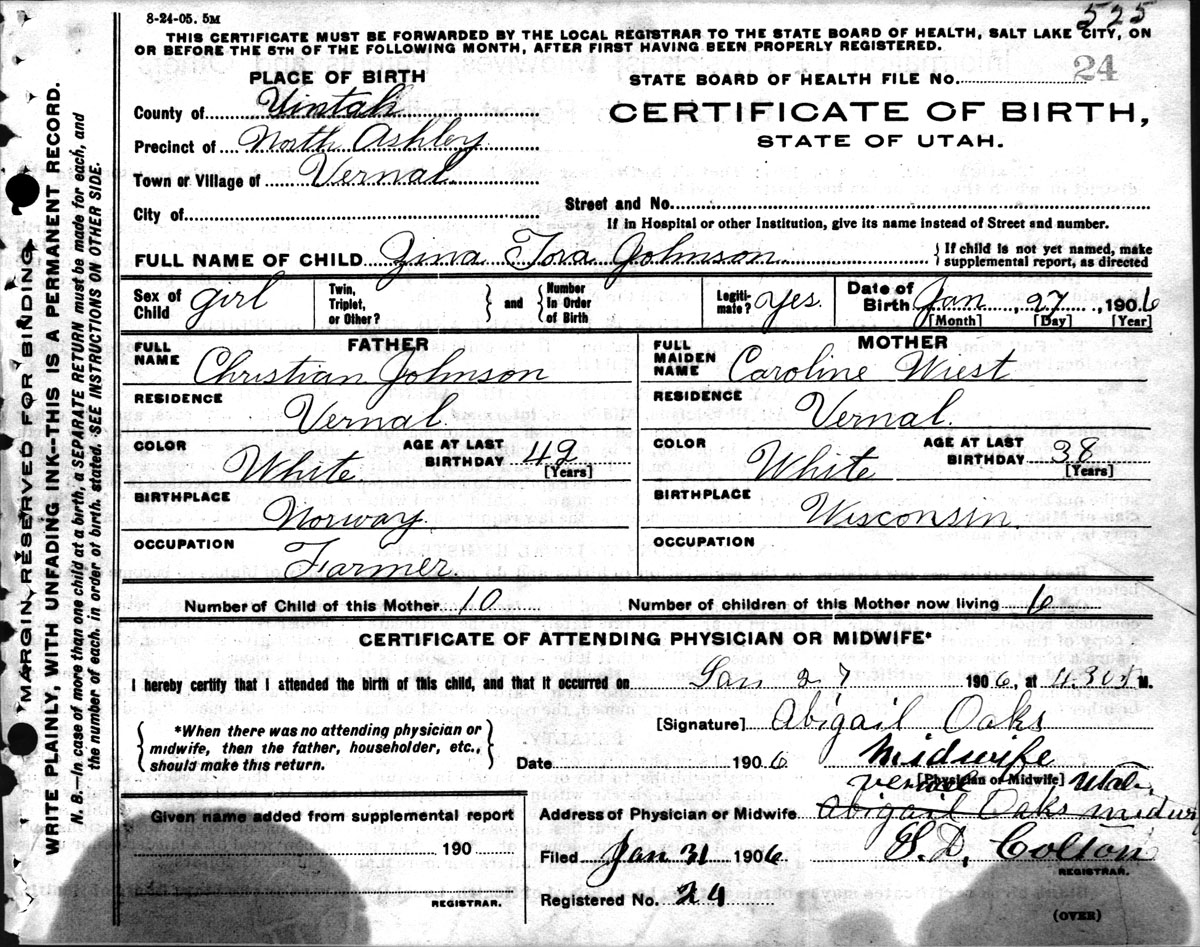 8-24-05. 5M
525
THIS CERTIFICATE MUST BE FORWARDED BY THE LOCAL REGISTRAR TO THE STATE BOARD OF HEALTH, SALT LAKE CITY, ON
OR BEFORE THE 5TH OF THE FOLLOWING MONTH, AFTER FIRST HAVING BEEN PROPERLY REGISTERED.
PLACE OF BIRTH
STATE BOARD OF HEALTH FILE NO. 24
County of Uintah
CERTIFICATE OF BIRTH,
Precinct of North Ashley
STATE OF UTAH.
Town or Village of Vernal
City of
Street and No.
If in Hospital or other Institution, give its name instead of Street and number.
FULL NAME OF CHILD Zina Tora Johnson
{If child is not yet named, make
supplemental report, as directed
Sex of
Child girl
Twin,
Triplet,
or Other?
} and {
Number
In Order
of Birth
Legiti-
mate? yes.
Date of
Birth Jan, 27, 1906
[Month] [Day] [Year]
FATHER
FULL
NAME Christian Johnson
RESIDENCE
Vernal.
COLOR White.
AGE AT LAST
BIRTHDAY 42
[Years]
BIRTHPLACE
Norway.
OCCUPATION
Farmer.
MOTHER
FULL
MAIDEN
NAME Caroline Wiest
RESIDENCE
Vernal.
COLOR White
AGE AT LAST
BIRTHDAY 38
[Years]
BIRTHPLACE
Wisconsin.
OCCUPATION
Number of Child of this Mother 10
Number of children of this Mother now living 6
CERTIFICATE OF ATTENDING PHYSICIAN OR MIDWIFE*
I hereby certify that I attended the birth of this child, and that it occurred on Jan 27 1906, at 4.30 M.
*When there was no attending physician or
midwife, then the father, householder, etc.,
should make this return.
[Signature] Abigail Oaks
Date 1906 Midwife
[Physician or Midwife]
Vernal Utah.
Address of Physician or Midwife Abigail Oaks midwi
Given name added from supplemental report
190
REGISTRAR.
Filed Jan 31 1906 S. D. Colton
REGISTRAR.
Registered No. 24
(OVER)
MARGIN RESERVED FOR BINDING
WRITE PLAINLY, WITH UNFADING INK--THIS IS A PERMANENT RECORD.
N. B.—In case of more than one child at a birth, a SEPARATE RETURN must be made for each, and
the number of each, in order of birth, stated. SEE INSTRUCTIONS ON OTHER SIDE.